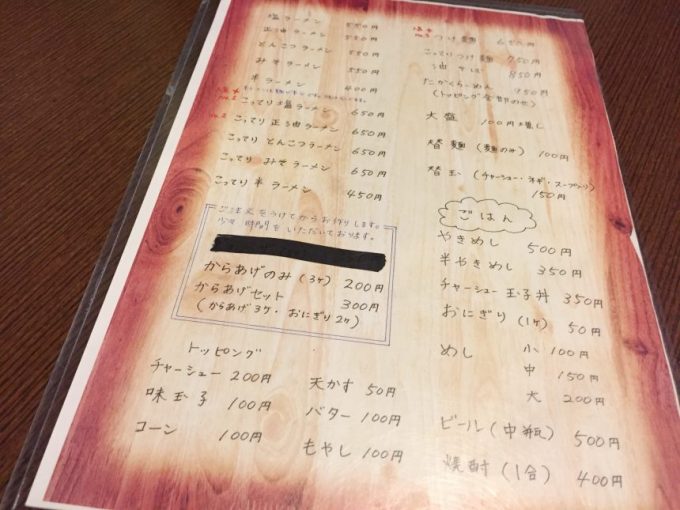 塩ラーメン 550円
正油ラーメン 550円
とんこつラーメン 550円
みそラーメン 550円
半ラーメン 400円
こってり塩ラーメン 650円
こってり正油ラーメン 650円
こってりとんこつラーメン 650円
こってりみそラーメン 650円
こってり半ラーメン 450円
ご注文をうけてからお作りします。
少々時間をいただいております。
からあげのみ(3ヶ) 200円
からあげセット 300円
(からあげ3ヶ・おにぎり2ヶ)
トッピング
チャーシュー 200円
味玉子 100円
コーン 100円
天かす 50円
バター 100円
もやし 100円
つけ麺 650円
こってりつけ麺 750円
油そば 850円
たかくらーめん 950円
(トッピング全部のせ)
大盛 100円増し
替麺(麺のみ) 100円
替玉(チャーシュー・ネギ・スープ入り)
150円
ごはん
やきめし 500円
半やきめし 350円
チャーシュー玉子丼 350円
おにぎり(1ヶ) 50円
めし 小 100円
中 150円
大 200円
ビール(中瓶) 500円
焼酎(1合) 400円